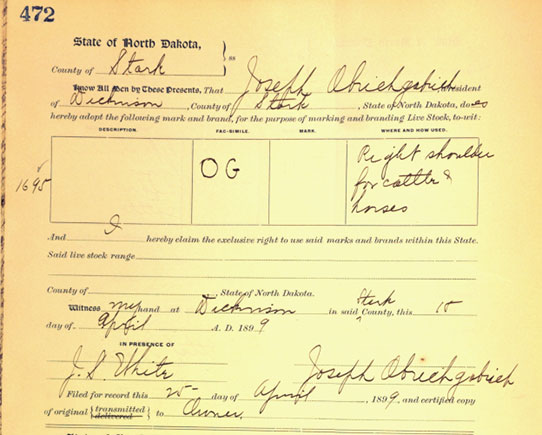 472
State of North Dakota,
County of Stark } ss
Know All Men by These Presents, That Joseph Obrichgobrich resident
of Dickinson, County of Stark, State of North Dakota, does
hereby adopt the following mark and brand, for the purpose of marking and branding Live Stock, to-wit:
DESCRIPTION. FAC-SIMILE. MARK. WHERE AND HOW USED.
1695 OG Right shoulder
for cattle &
horses
And I hereby claim the exclusive right to use said marks and brands within this State.
Said live stock range
County of , State of North Dakota.
Witness my hand at Dickinson in said Stark County, this 15
day of April A. D. 1899
IN PRESENCE OF
J. S. White Joseph Obrichgobrich
Filed for record this 25- day of April, 1899, and certified copy
of original {transmitted
delivered} to Owner.